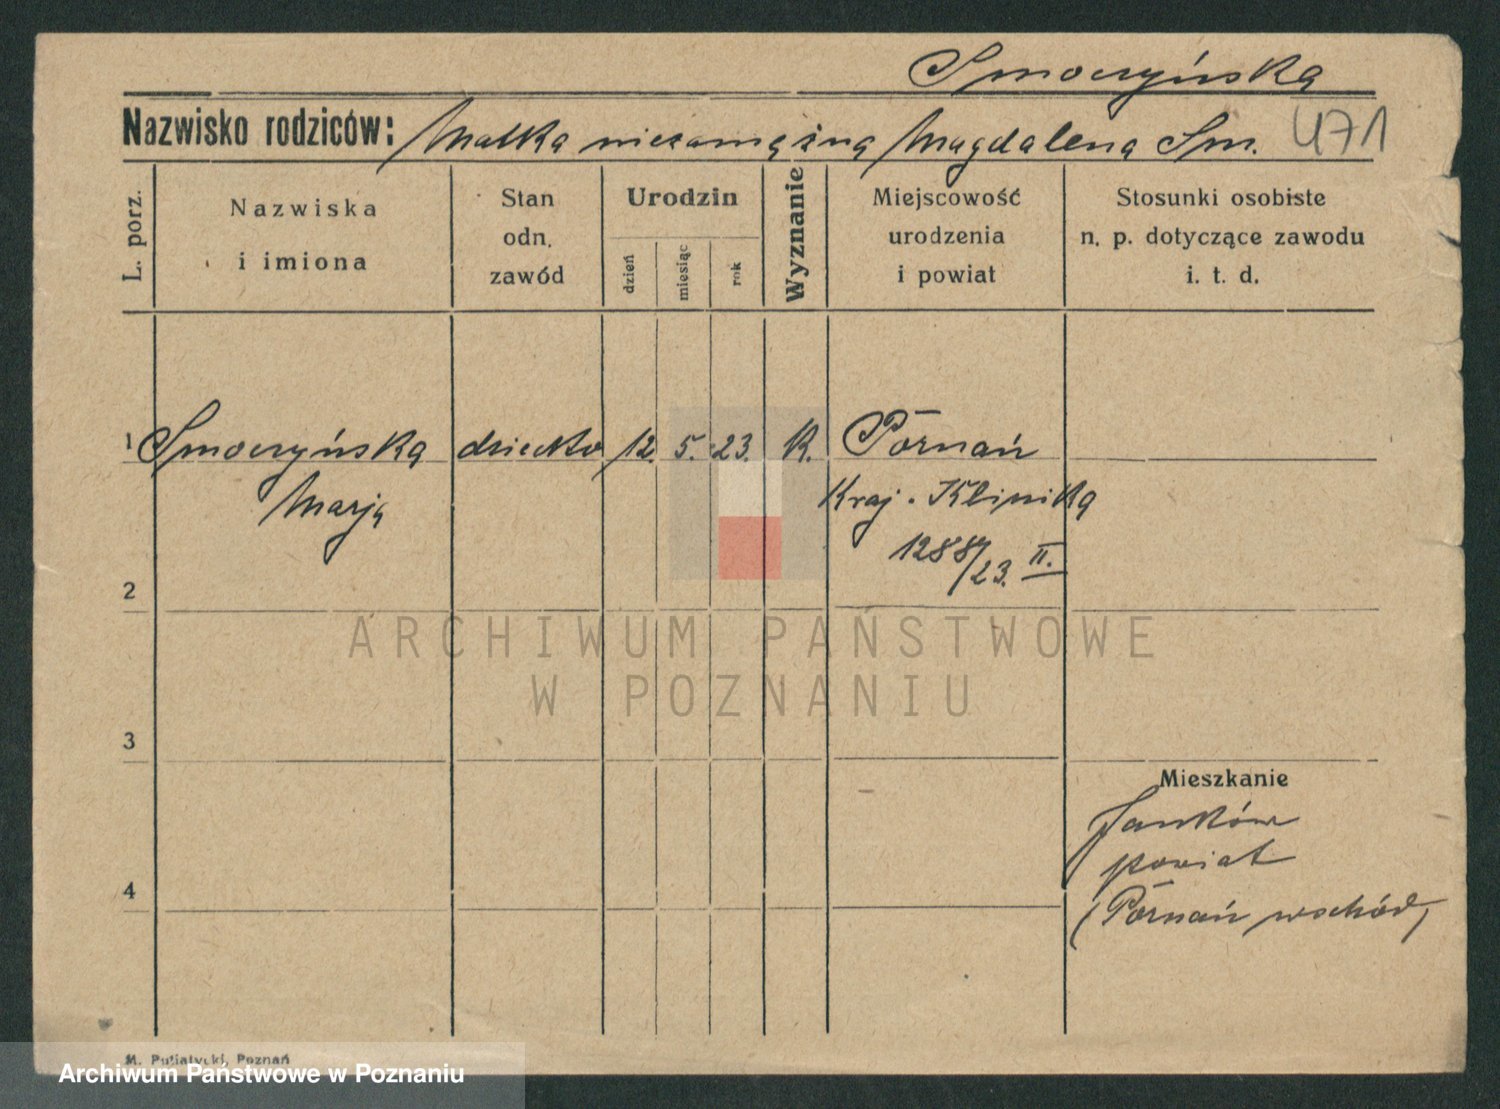 Smoczyńska
Nazwisko rodziców: Matka niezamężna Magdalena Sm. 471
L. porz.
Nazwiska
i imiona
Stan
odn.
zawód
Urodzin
dzień
miesiąc
rok
Wyznanie
Miejscowość
urodzenia
i powiat
Stosunki osobiste
n. p. dotyczące zawodu
i. t. d.
1 Smoczyńska dziecko 12. 5. 23. K. Poznań
Marja Kraj. Klinika
1288/23. II.
2
ARCHIWUM PAŃSTWOWE
W POZNANIU
3
Mieszkanie
Janków
powiat
4
(Poznań wschód)
M. Putiatycki, Poznań
Archiwum Państwowe w Poznaniu